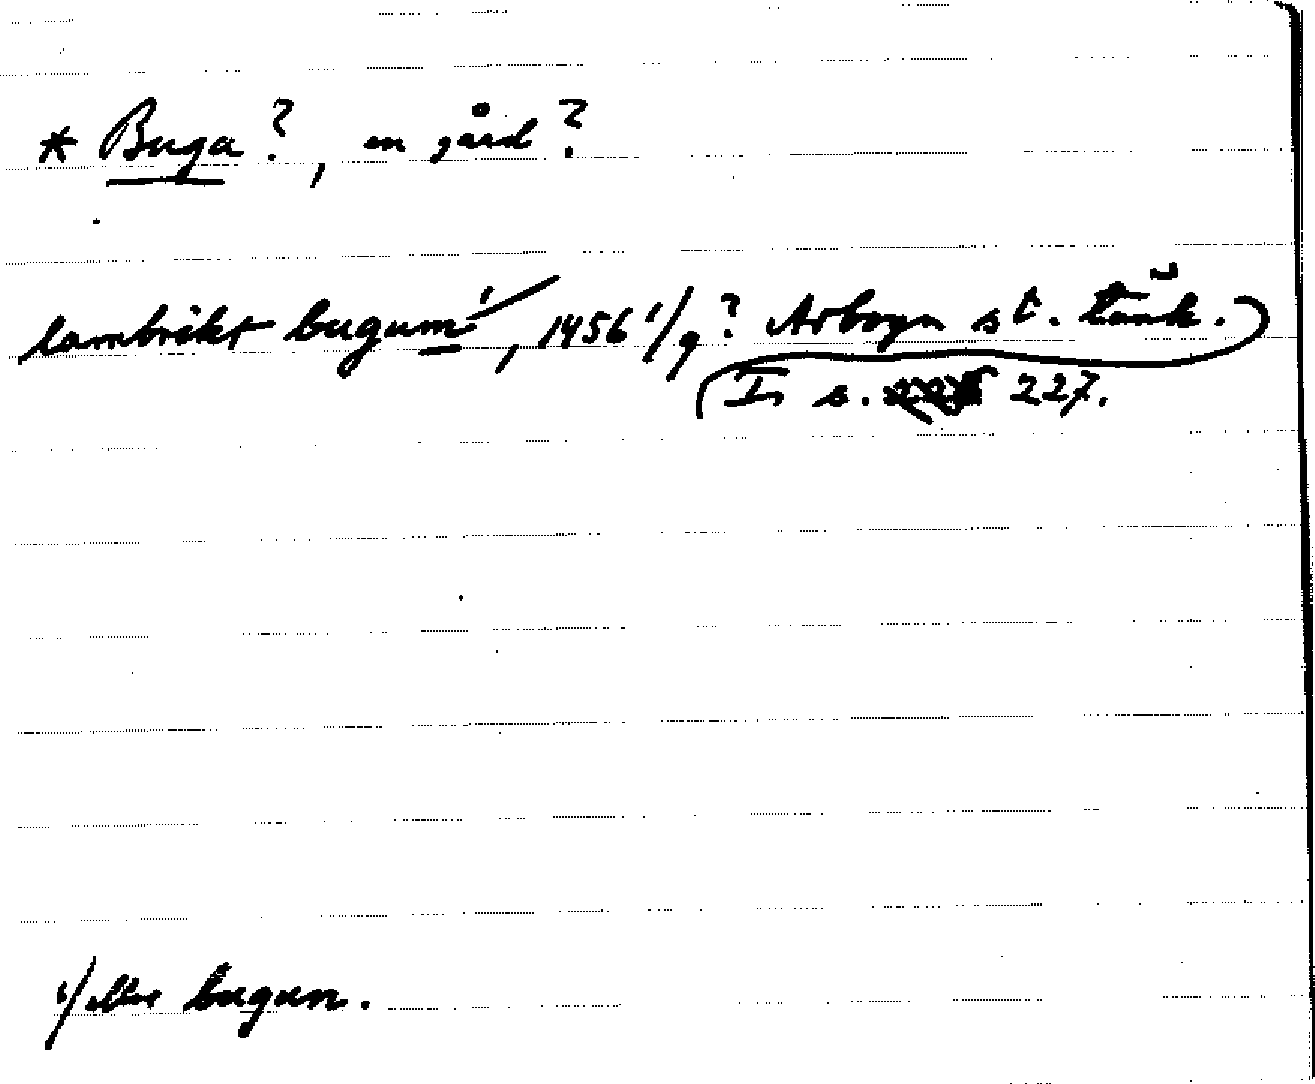 * Buga?, en gård?
lambrikt bugum¹⁾, 1456 1/9? Arboga st. tänk.
I, s. 227.
¹⁾ eller bugun.